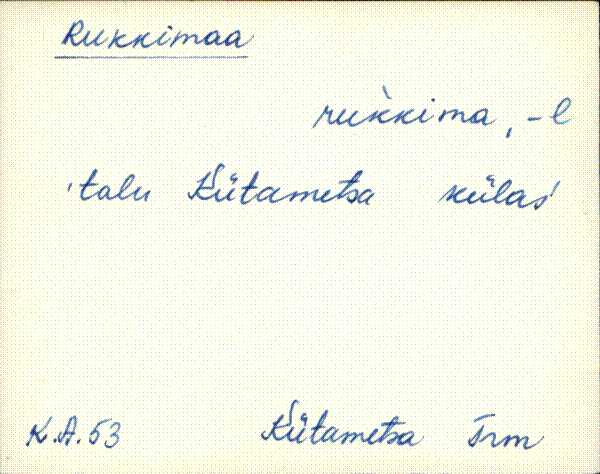 Rukkimaa
rùkkima, -l
'talu Kütametsa külas'
K.A.53 Kütametsa Trm